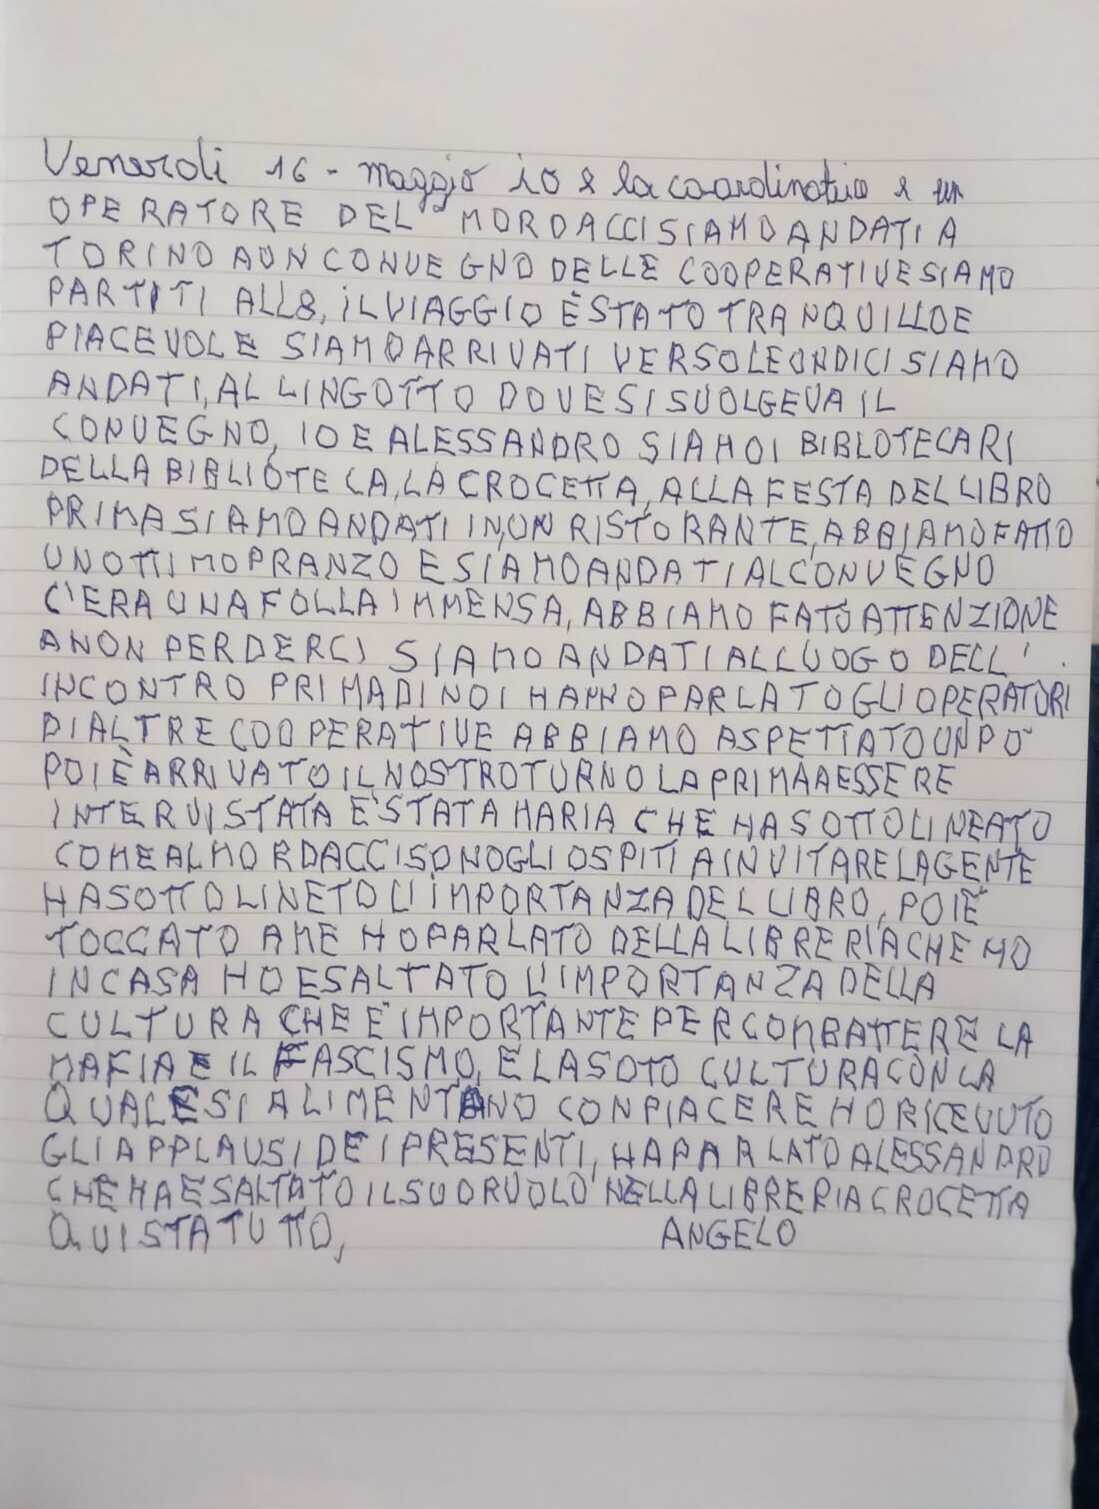 Venerdi 16 - maggio io e la coordinatrice e un
OPERATORE DEL MORDACCI SIAMO ANDATI A
TORINO A UN CONVEGNO DELLE COOPERATIVE SIAMO
PARTITI ALL8, iL VIAGGIO È STATO TRANQUILLO E
PIACEVOLE SIAMO ARRIVATI VERSO LE UNDICI SIAMO
ANDATI, AL LINGOTTO DOVE SI SVOLGEVA IL
CONVEGNO, IO E ALESSANDRO SIAMO I BIBLOTECARI
DELLA BIBLIOTECA, LA CROCETTA, ALLA FESTA DEL LIBRO
PRIMA SIAMO ANDATI IN UN RISTORANTE, ABBIAMO FATTO
UN OTTIMO PRANZO E SIAMO ANDATI AL CONVEGNO
C'ERA UNA FOLLA IMMENSA, ABBIAMO FATO ATTENZIONE
A NON PERDERCI SIAMO ANDATI AL LUOGO DELL'
INCONTRO PRIMA DI NOI HANNO PARLATO GLI OPERATORI
DI ALTRE COOPERATIVE ABBIAMO ASPETTATO UN PO'
POI È ARRIVATO IL NOSTRO TURNO LA PRIMA A ESSERE
INTERVISTATA E' STATA MARIA CHE HA SOTTOLINEATO
COME AL MORDACCI SONO GLI OSPITI A INVITARE LA GENTE
HA SOTTOLINETO L'IMPORTANZA DEL LIBRO, POI È
TOCCATO A ME HO PARLATO DELLA LIBRERIA CHE HO
IN CASA HO ESALTATO L'IMPORTANZA DELLA
CULTURA CHE E' IMPORTANTE PER COMBATTERE LA
MAFIA E IL FASCISMO, E LA SOTO CULTURA CON LA
QUALE SI ALIMENTANO CON PIACERE HO RICEVUTO
GLI APPLAUSI DEI PRESENTI, HA PARLATO ALESSANDRO
CHE HA ESALTATO IL SUO RUOLO NELLA LIBRERIA CROCETTA
QUI STA TUTTO, ANGELO